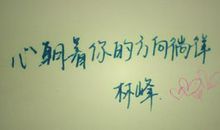 心朝着你的方向徜徉
林峰